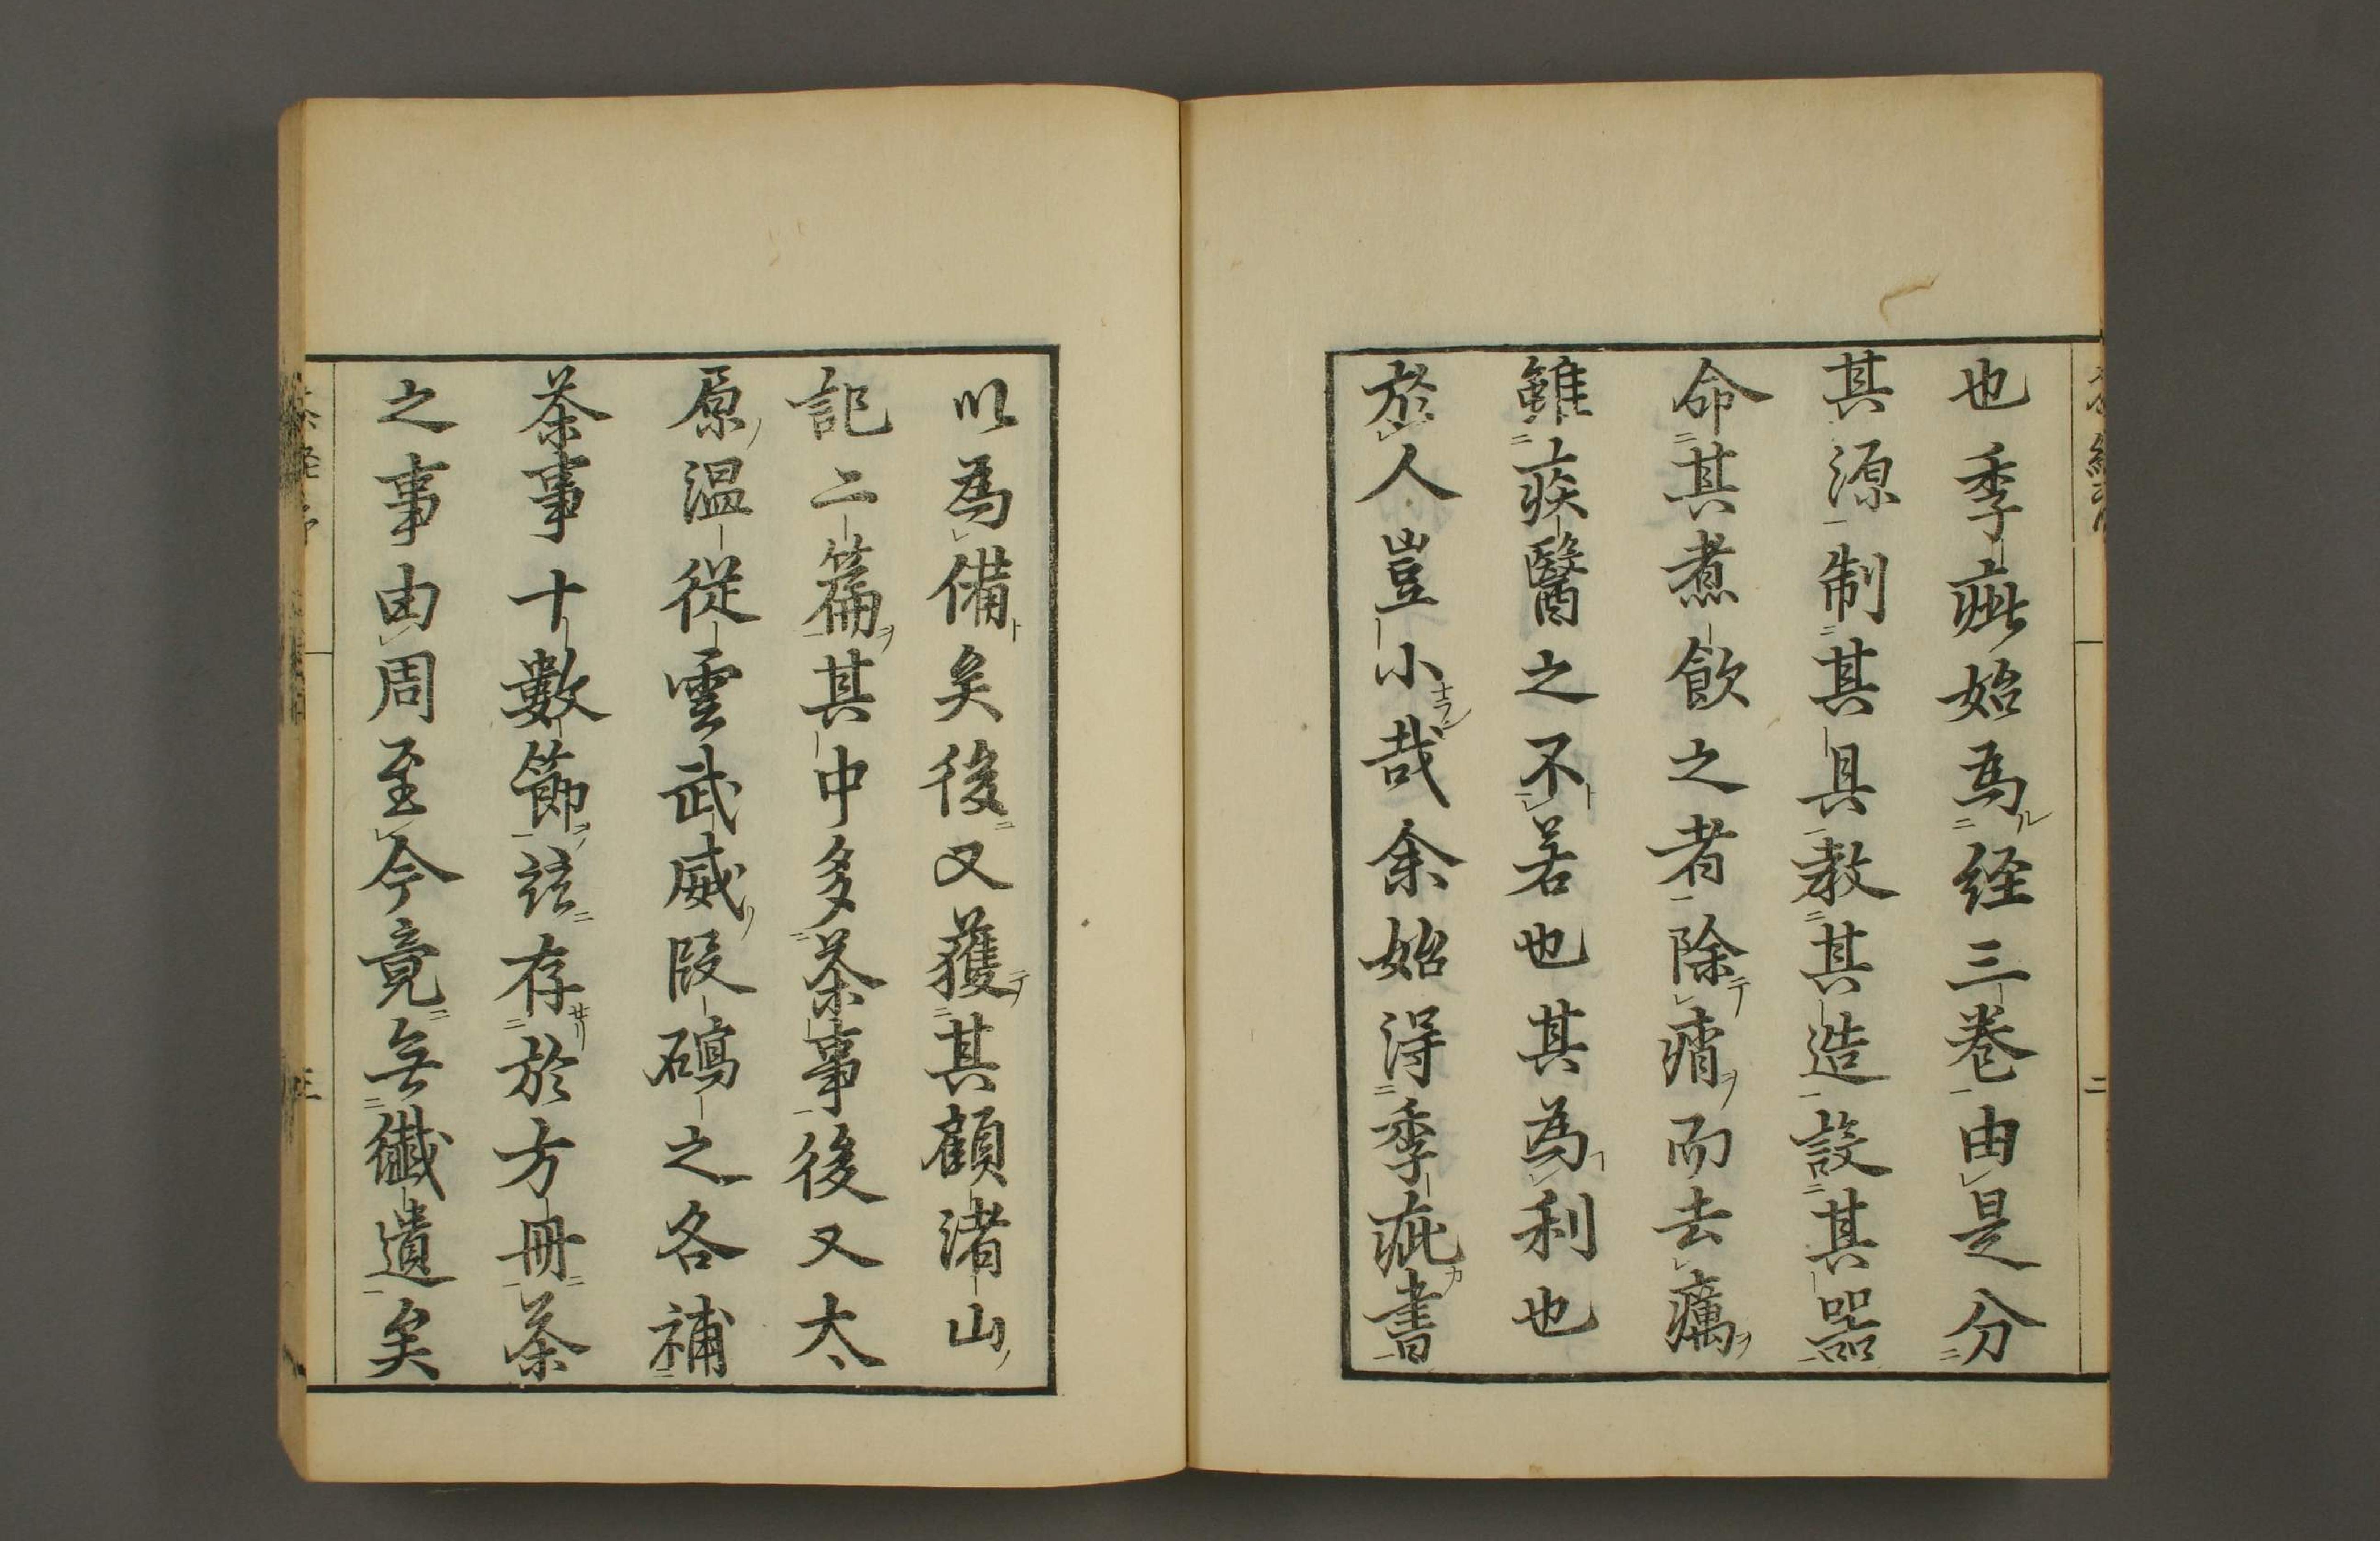 也季疵始為經三卷由是分
其源制其具教其造設其器
命其煮飲之者除痟而去癘
雖疾醫之不若也其為利也
於人豈小哉余始得季疵書
以為備矣後又獲其顧渚山
記二篇其中多茶事後又太
原溫從雲武威段䃜之各補
茶事十數節竝存於方冊茶
之事由周至今竟無纖遺矣
二
三